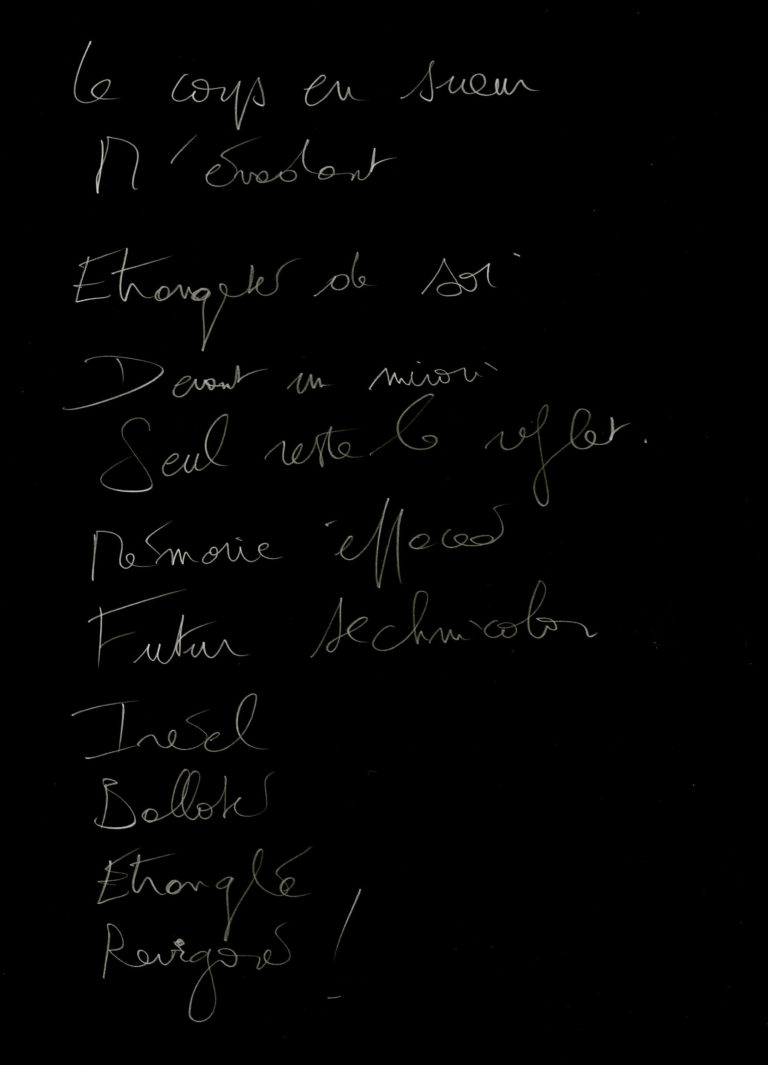 Le corps en sueur
M'évadant
Etrangeté de soi
Devant un miroir
Seul reste le reflet.
Mémoire effacée
Futur technicolor
Irréel
Balloté
Etranglé
Revigoré !